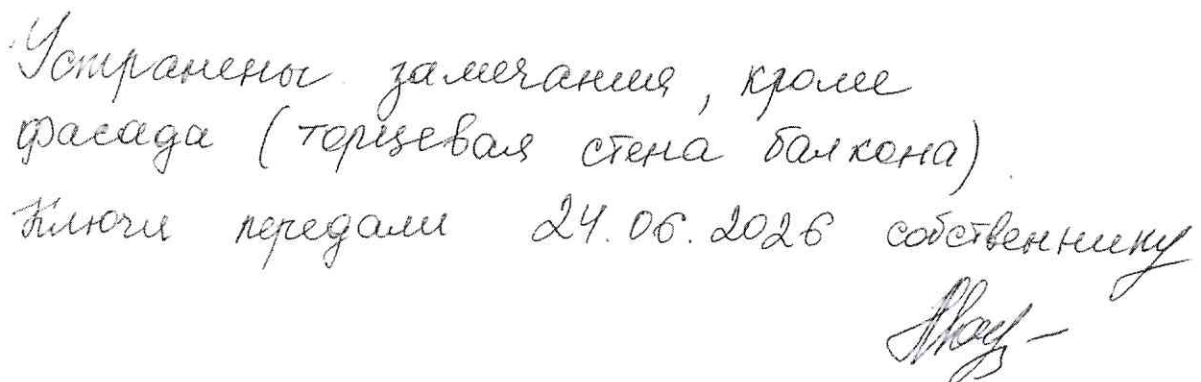 Устранены замечания, кроме
фасада (торцевая стена балкона).
Ключи передали 24.06.2026 собственнику